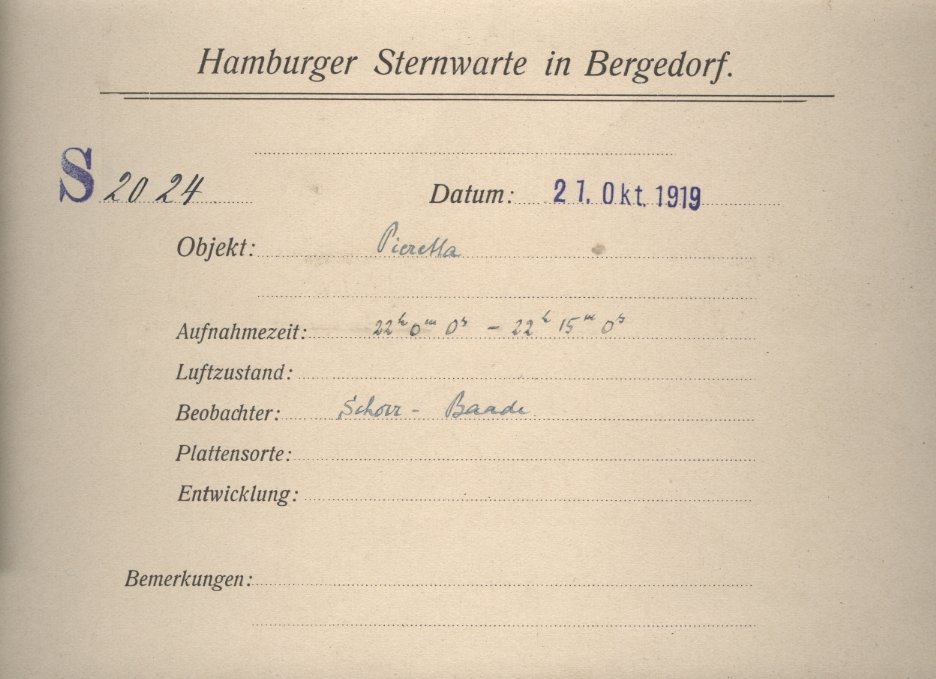 Hamburger Sternwarte in Bergedorf.
S 2024 Datum: 21. Okt. 1919
Objekt: Pieretta
Aufnahmezeit: 22ʰ 0ᵐ 0ˢ – 22ʰ 15ᵐ 0ˢ
Luftzustand:
Beobachter: Schorr - Baade
Plattensorte:
Entwicklung:
Bemerkungen: